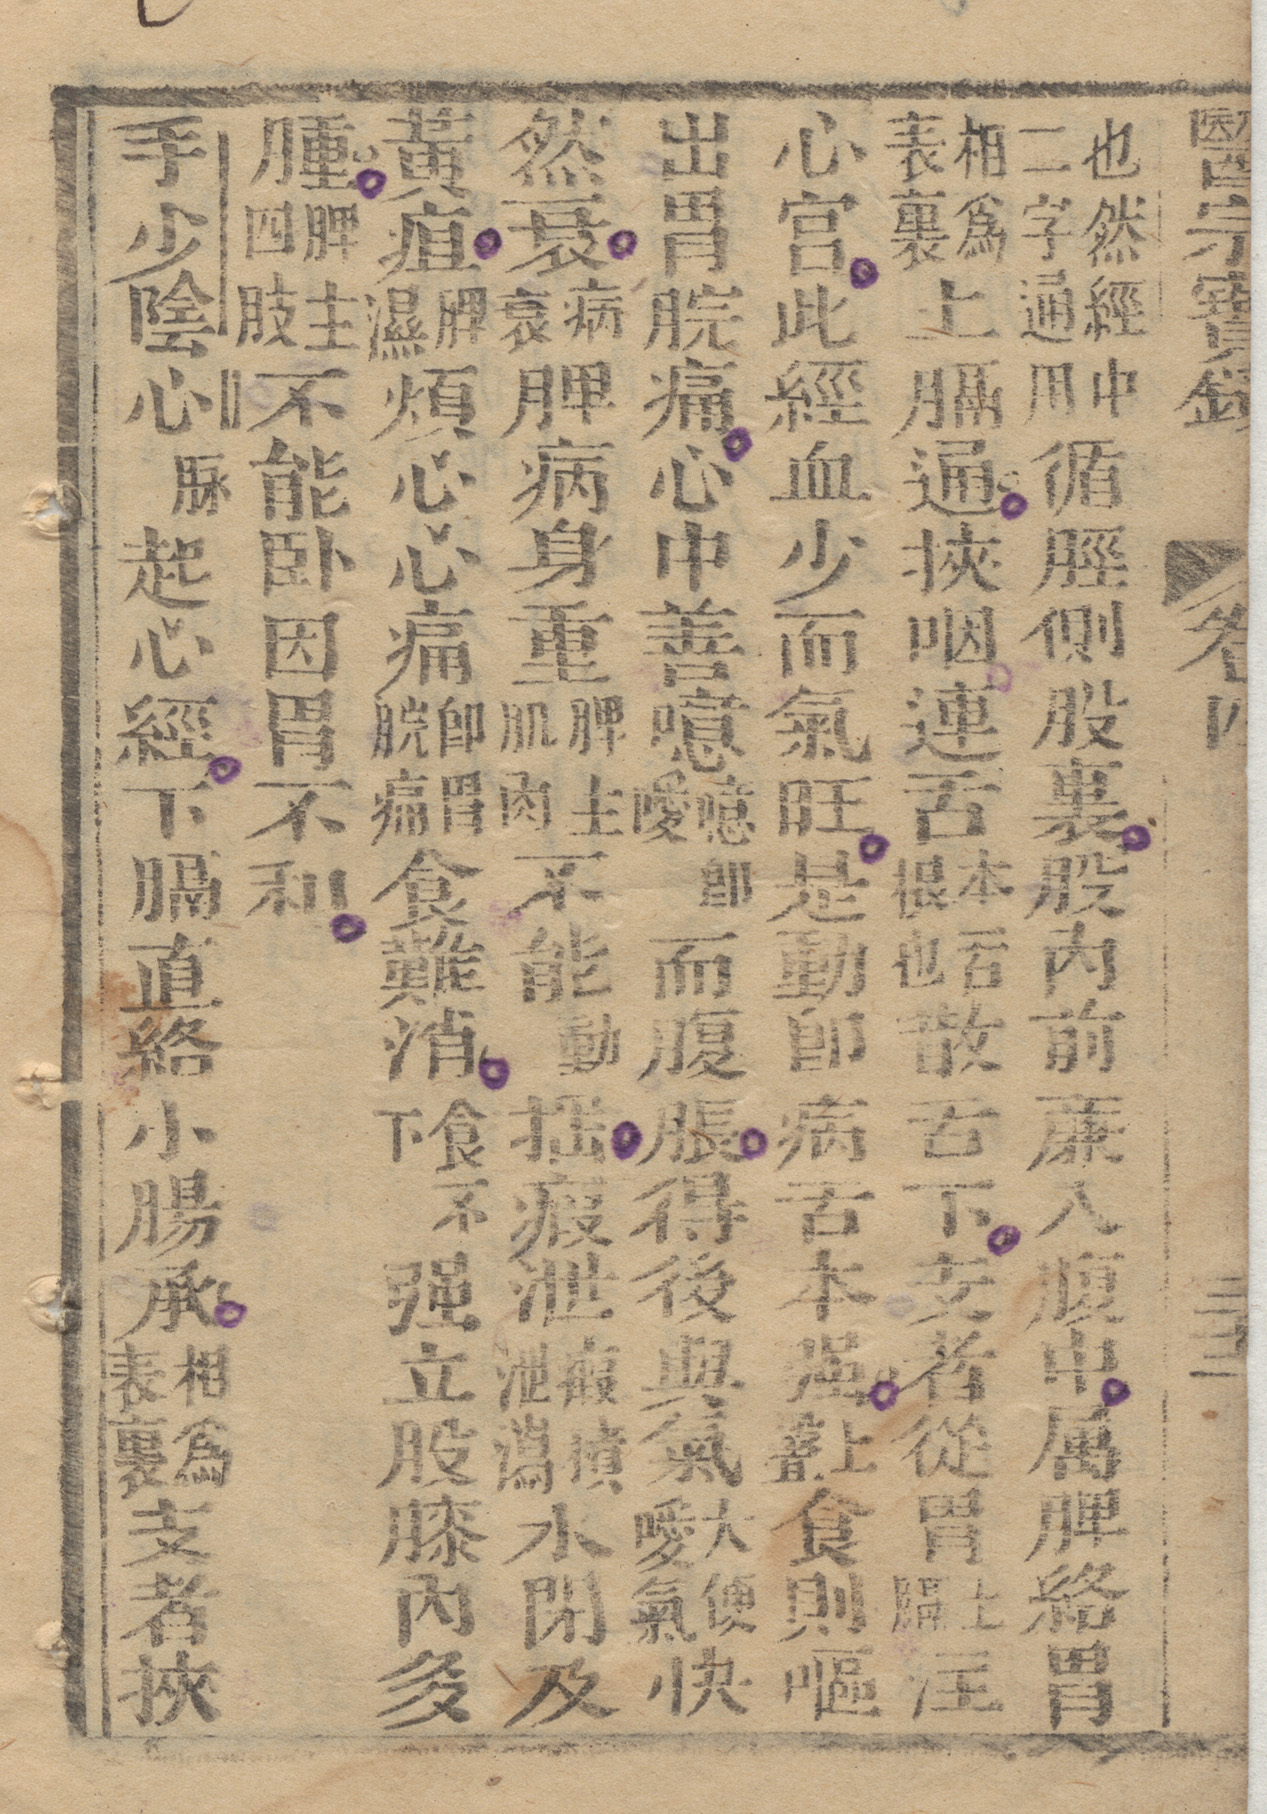 醫宗寶鏡 卷四 二十三
也然經中二字通用循脛側股裏股內前廉入腹中属脾絡胃
相爲表裏上膈通挾咽連舌本舌根也散舌下支者從胃上膈注
心宮此經血少而氣旺是動卽病舌本强上聲食則嘔
出胃脘痛心中善噫噫卽噯而腹脹得後與氣大便噯氣快
然衰病衰脾病身重脾主肌肉不能動揺瘕泄瘕積泄瀉水閉及
黃疸脾濕煩心心痛卽胃脘痛食難消食不下强立股膝內多
腫脾主四肢不能卧因胃不和
手少陰心脉起心經下膈直絡小腸承相爲表裏支者挾